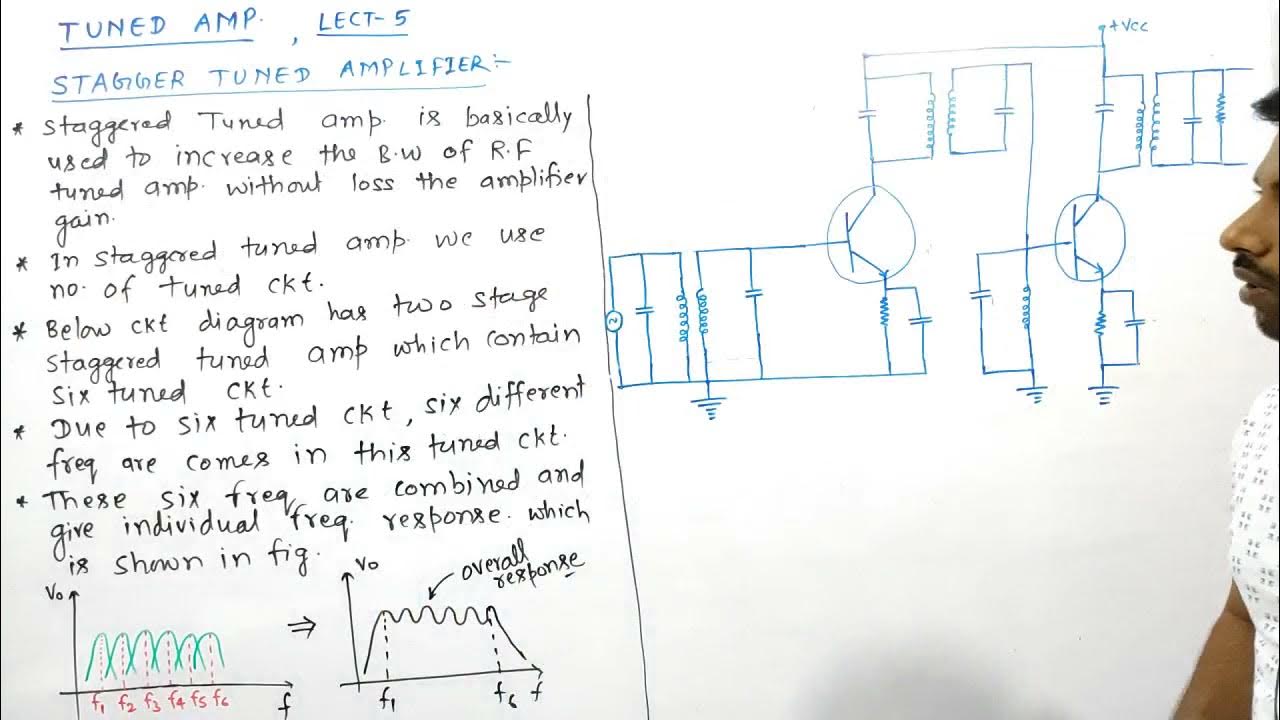 TUNED AMP. , LECT-5
STAGGER TUNED AMPLIFIER:-
* Staggered Tuned amp. is basically
used to increase the B.W of R.F
tuned amp. without loss the amplifier
gain.
* In staggered tuned amp. we use
no. of tuned ckt.
* Below ckt diagram has two stage
staggered tuned amp which contain
six tuned ckt.
* Due to six tuned ckt, six different
freq are comes in this tuned ckt.
* These six freq are combined and
give individual freq. response. which
is shown in fig.
Vo
f1 f2 f3 f4 f5 f6 f
⇒
Vo
overall
response
f1 f6 f
+Vcc